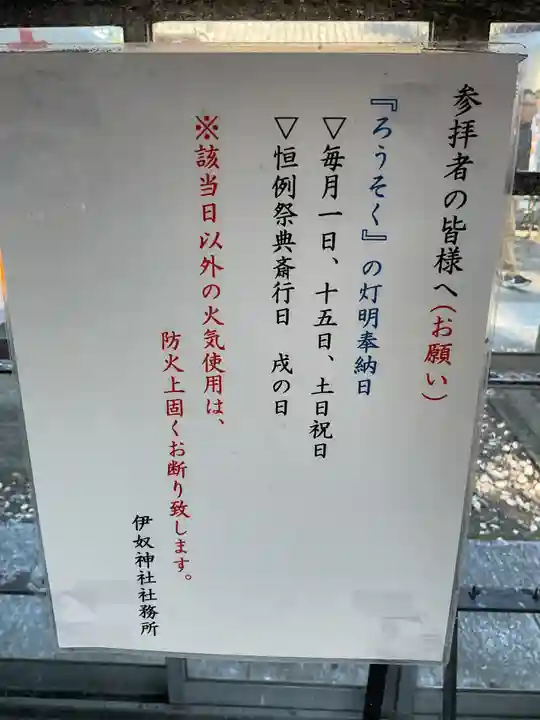 参拝者の皆様へ(お願い)
『ろうそく』の灯明奉納日
▽毎月一日、十五日、土日祝日
▽恒例祭典斎行日　戌の日
※該当日以外の火気使用は、
防火上固くお断り致します。
伊奴神社社務所